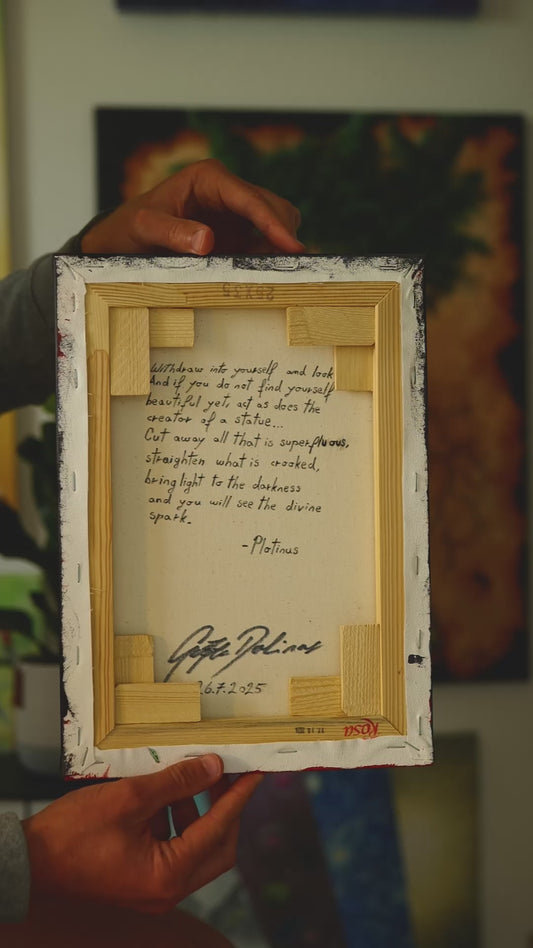 25X35
Withdraw into yourself and look
And if you do not find yourself
beautiful yet, act as does the
creator of a statue...
Cut away all that is superfluous,
straighten what is crooked,
bring light to the darkness
and you will see the divine
spark.
-Plotinus
Dolinar
26.7.2025
Kosa